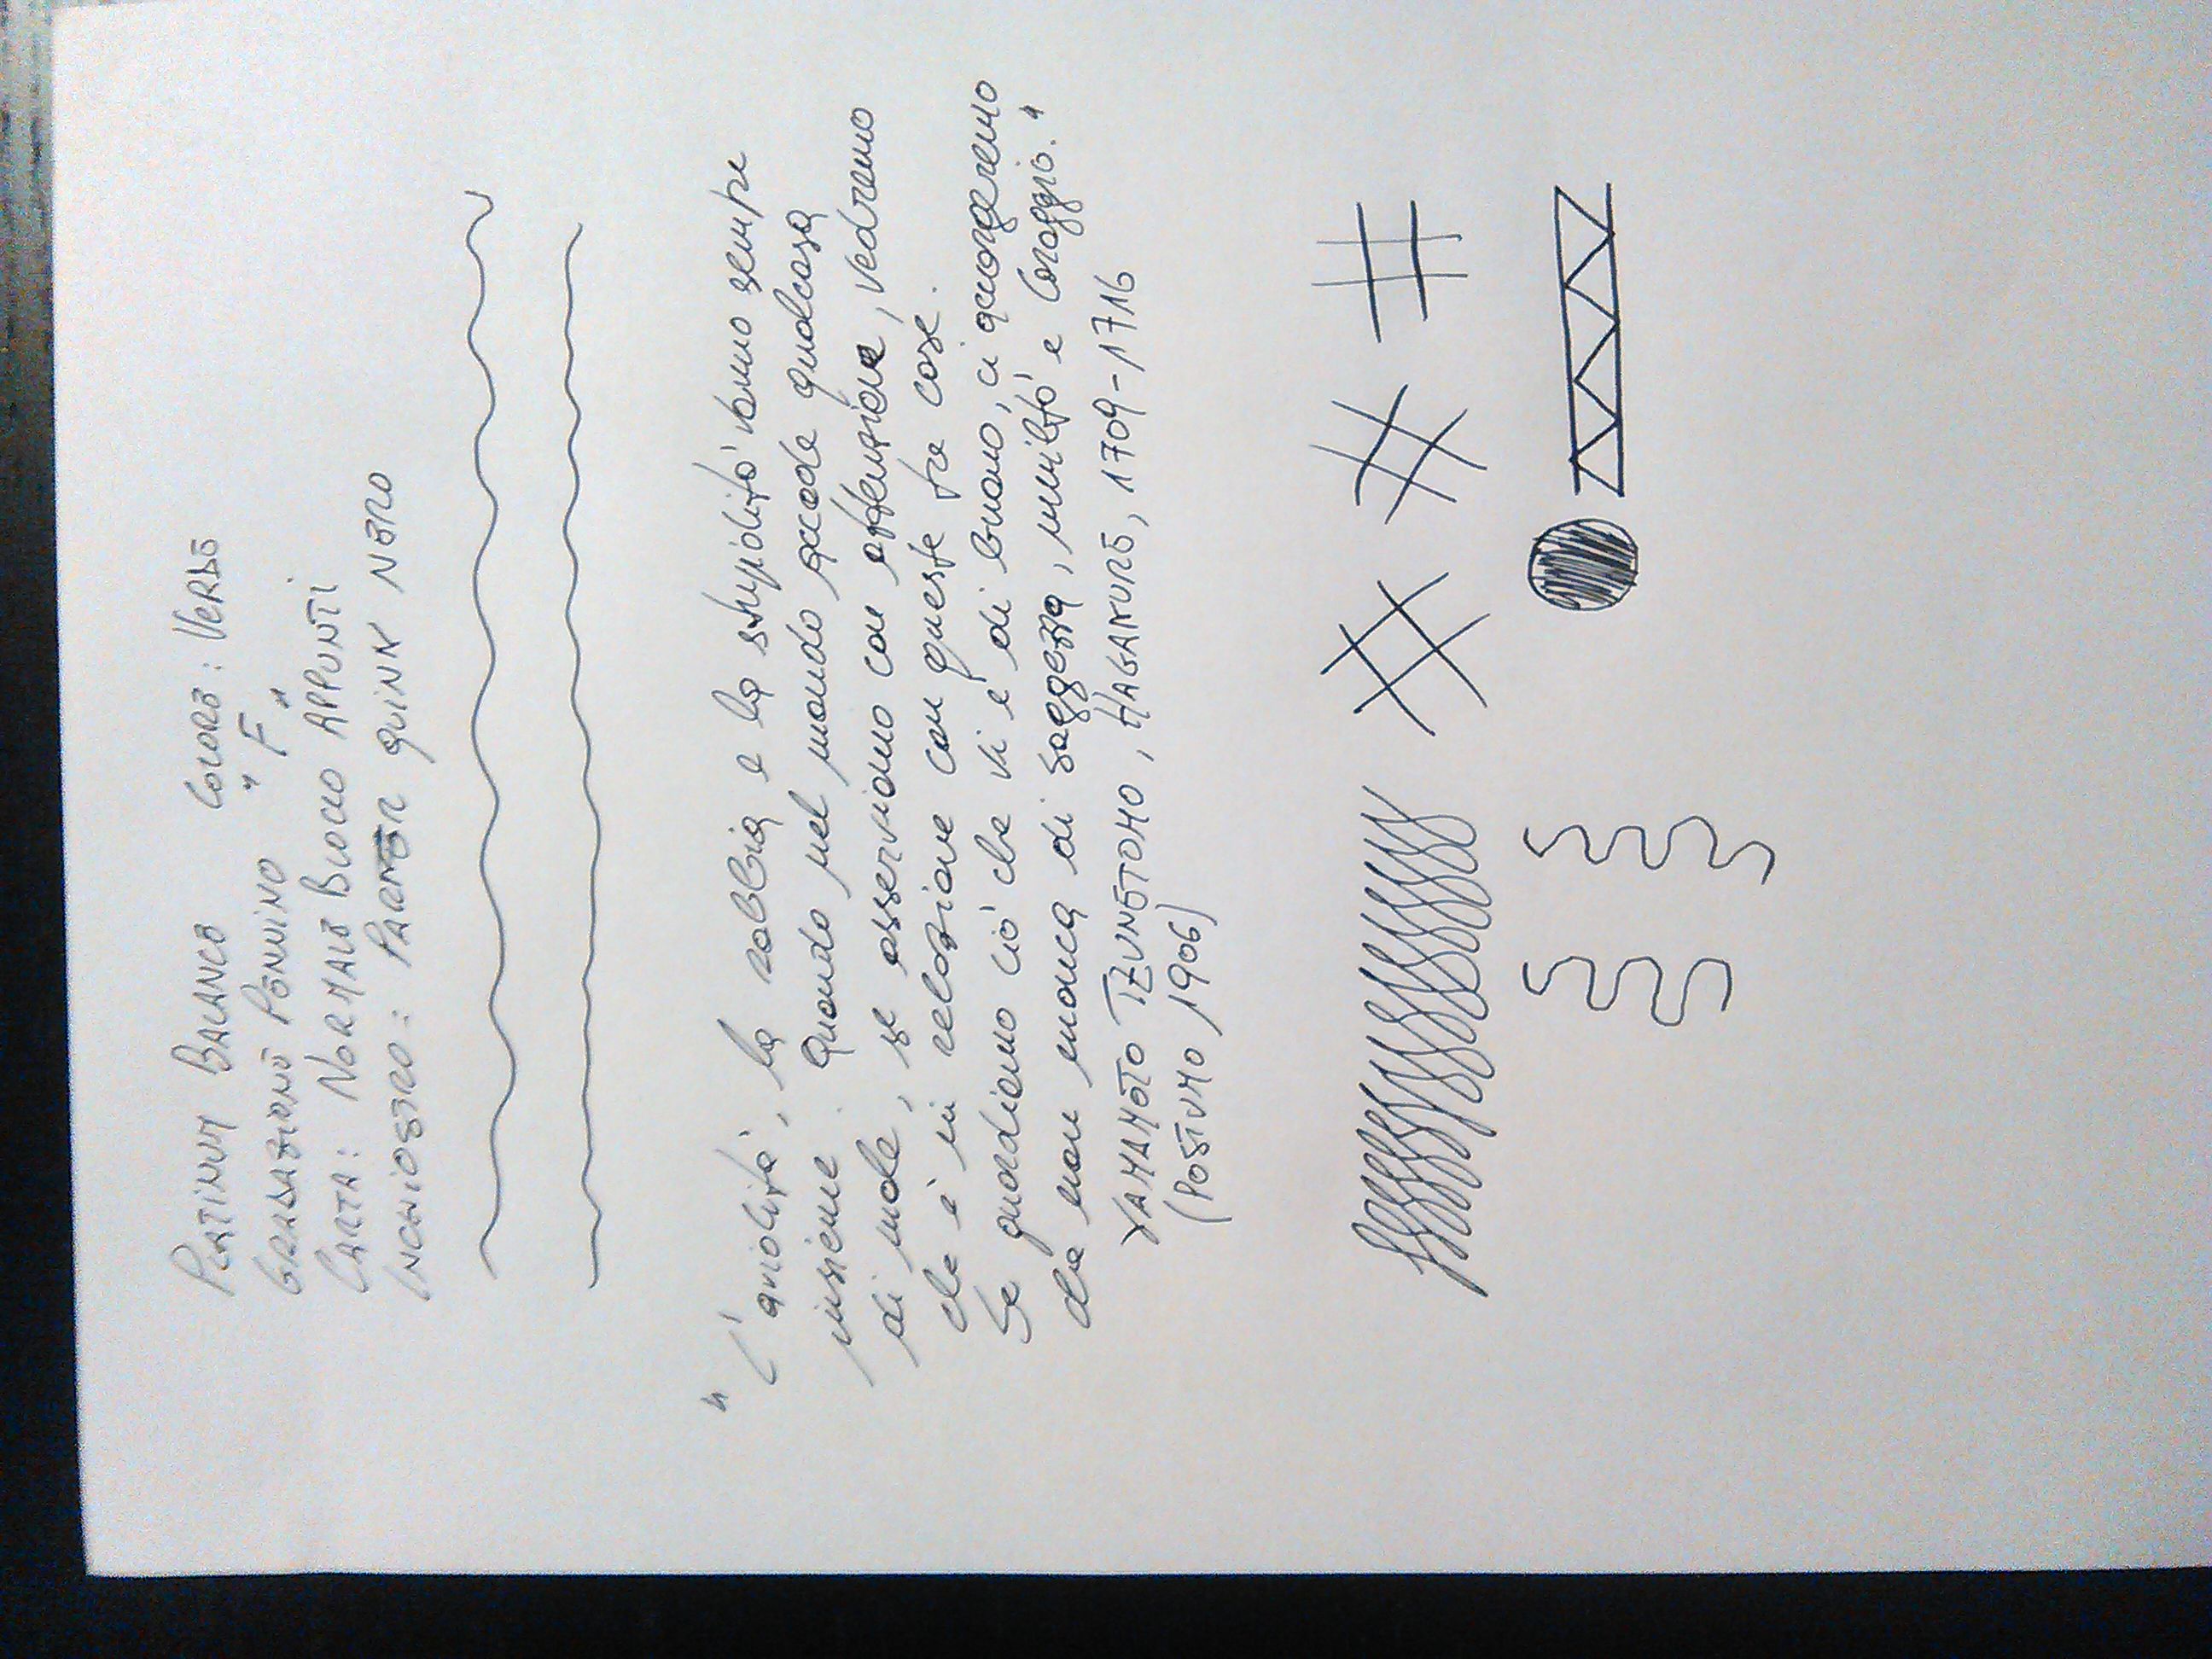 PLATINUM BALANCE COLORE: VERDE
GRADAZIONE PENNINO "F"
CARTA: NORMALE BLOCCO APPUNTI
INCHIOSTRO: PARKER QUINK NERO
"L'avidità, la rabbia e la stupidità vanno sempre
insieme. Quando nel mondo accade qualcosa
di male, se osserviamo con attenzione, vedremo
che è in relazione con queste tre cose.
Se guardiamo ciò che vi è di buono, ci accorgeremo
che non manca di saggezza, umiltà e coraggio."
YAMAMOTO TZUNETOMO, HAGAKURE, 1709-1716
(POSTUMO, 1906)